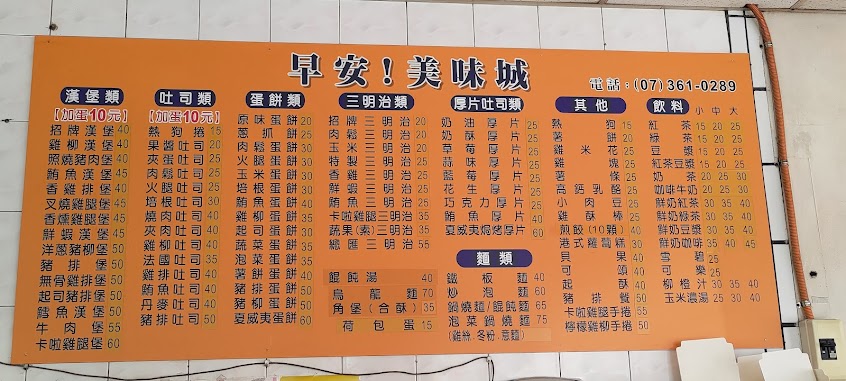 早安！美味城
電話：(07)361-0289
漢堡類
【加蛋10元】
招牌漢堡 40
雞柳漢堡 40
照燒豬肉堡 40
鮪魚漢堡 45
香雞排堡 40
叉燒雞腿堡 45
香燻雞腿堡 45
鮮蝦漢堡 45
洋蔥豬柳堡 50
豬排堡 50
無骨雞排堡 50
起司豬排堡 50
鱈魚漢堡 50
牛肉堡 55
卡啦雞腿堡 60
吐司類
【加蛋10元】
熱狗捲 15
果醬吐司 20
夾蛋吐司 25
肉鬆吐司 25
火腿吐司 25
培根吐司 30
燒肉吐司 40
夾肉吐司 40
雞柳吐司 40
法國吐司 35
雞排吐司 40
鮪魚吐司 40
丹麥吐司 40
豬排吐司 50
蛋餅類
原味蛋餅 20
蔥抓餅 25
肉鬆蛋餅 30
火腿蛋餅 30
玉米蛋餅 30
培根蛋餅 30
鮪魚蛋餅 40
雞柳蛋餅 40
起司蛋餅 30
蔬菜蛋餅 35
泡菜蛋餅 35
薯餅蛋餅 40
豬排蛋餅 50
豬柳蛋餅 50
夏威夷蛋餅 60
三明治類
招牌三明治 20
肉鬆三明治 20
玉米三明治 20
特製三明治 25
香雞三明治 25
鮮蝦三明治 25
鮪魚三明治 25
卡啦雞腿三明治 35
蔬果(素)三明治 35
總匯三明治 55
餛飩湯 40
烏龍麵 70
角堡（合酥） 35
荷包蛋 15
厚片吐司類
奶油厚片 25
奶酥厚片 25
草莓厚片 25
蒜味厚片 25
藍莓厚片 25
花生厚片 25
巧克力厚片 25
鮪魚厚片 40
夏威夷焗烤厚片 60
麵類
鐵板麵 40
炒泡麵 60
鍋燒麵/餛飩麵 65
泡菜鍋燒麵 75
(雞絲.冬粉.意麵)
其他
熱狗 15
薯餅 25
雞米花 25
雞塊 25
薯條 25
高鈣乳酪 25
小肉豆 30
雞酥棒 25
煎餃(10顆) 40
港式蘿蔔糕 30
貝果 40
可頌 40
起酥 40
豬排餐 50
卡啦雞腿手捲 55
檸檬雞柳手捲 50
飲料 小 中 大
紅茶 15 20 25
綠茶 15 20 25
豆漿 15 20 25
紅茶豆漿 15 20 25
奶茶 20 25 30
咖啡牛奶 20 25 30
鮮奶紅茶 30 35 40
鮮奶綠茶 30 35 40
鮮奶豆漿 30 35 40
鮮奶咖啡 35 40 45
雪碧 25
可樂 25
柳橙汁 30 35 40
玉米濃湯 25 30 40